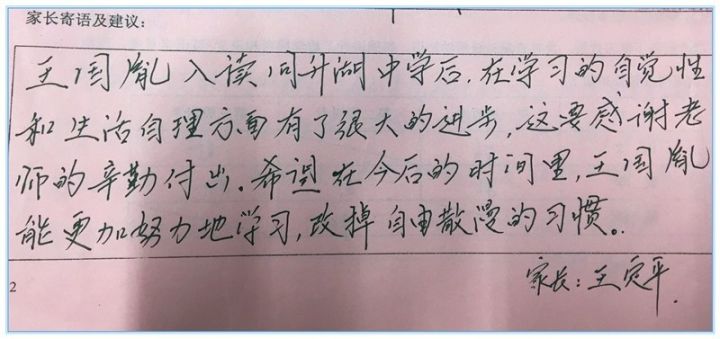 家长寄语及建议:
王国胤入读同升湖中学后,在学习的自觉性
和生活自理方面有了很大的进步,这要感谢老
师的辛勤付出。希望在今后的时间里,王国胤
能更加努力地学习,改掉自由散漫的习惯。
家长:王定平.
2